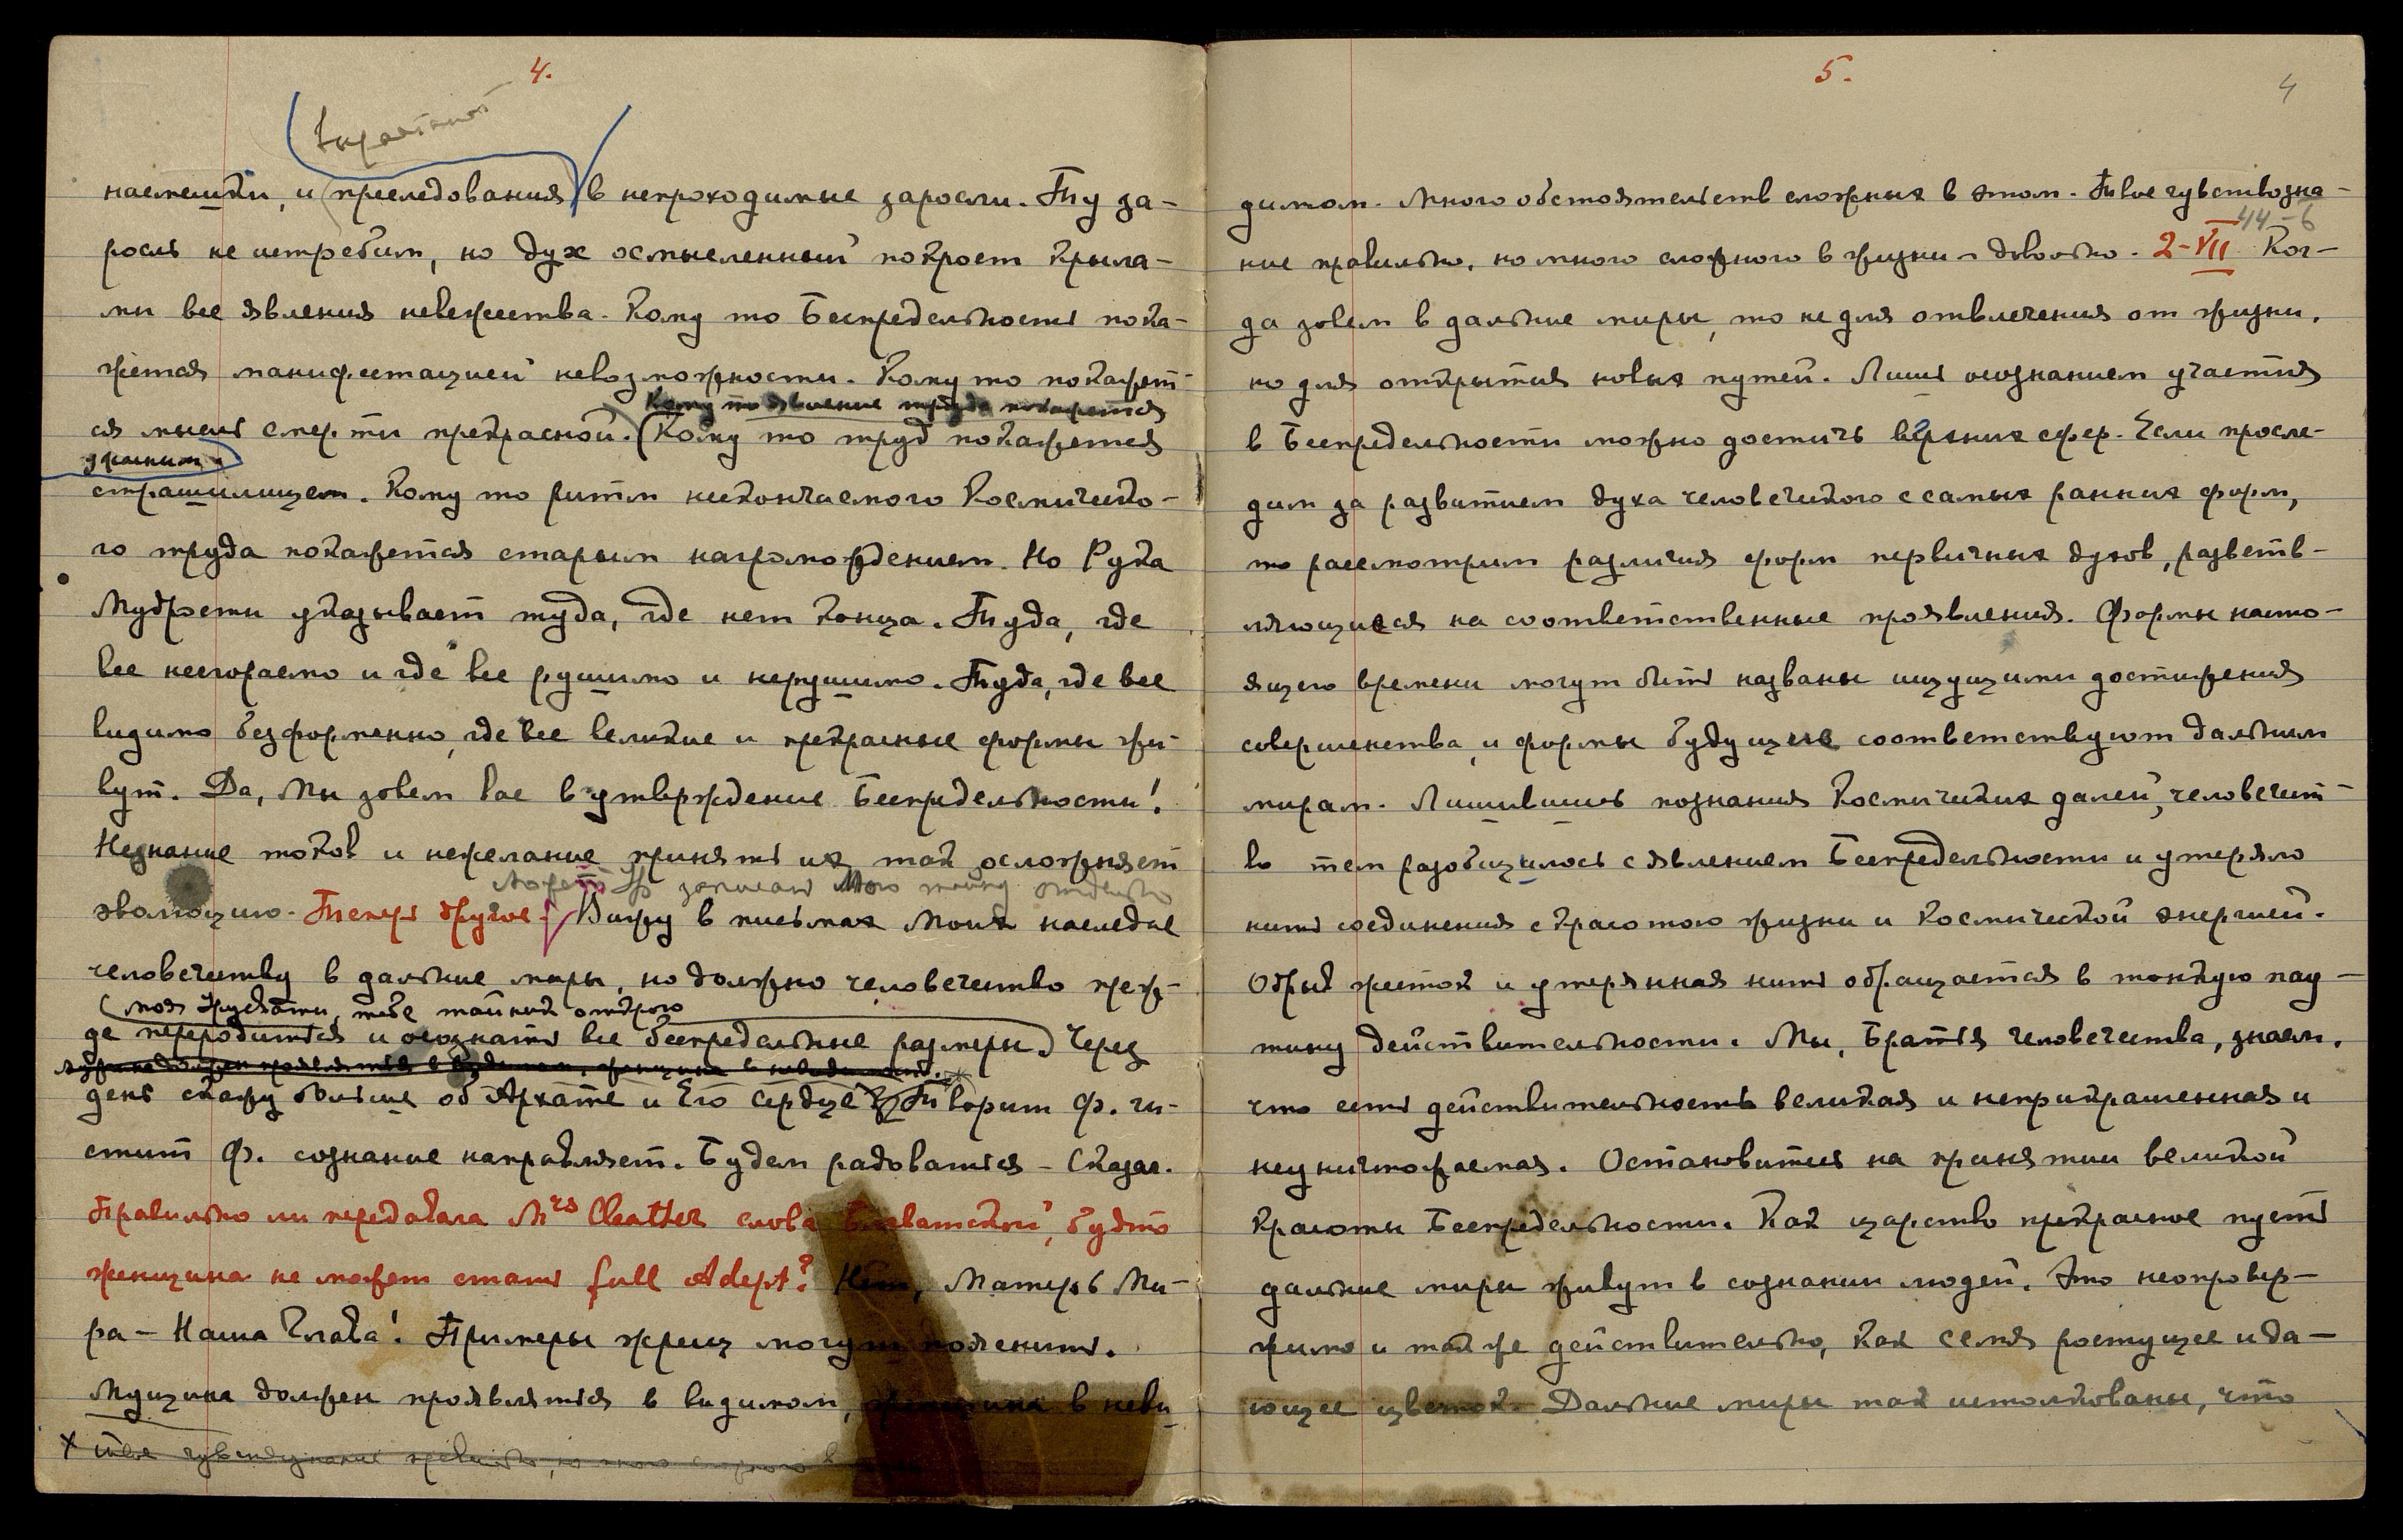 4.
насмешки, и (преследования) в непроходимые заросли. Ту за-
росль не истребим, но дух осмысленный покроет крыла-
ми все явления невежества. Кому то Беспредельность пока-
жется манифестацией невозможности. Кому то покажет-
Кому то явление труда покажется
ся мысль смерти прекрасной. (Кому то труд покажется
страшилищем. Кому то ритм нескончаемого Космическо-
го труда покажется старым нагромождением. Но Рука
Мудрости указывает туда, где нет конца. Туда, где
все несгораемо и где все рушимо и нерушимо. Туда, где все
видимо безформенно, где все великие и прекрасные формы жи-
вут. Да, Мы зовем вас в утверждение Беспредельности!
Незнание токов и нежелание принять их так осложняет
записать Мою тайну отдельно
эволюцию. Теперь другое. Вижу в письмах Моих наследие
человечеству в дальние миры, но должно человечество преж-
(Моя Урусвати, тебе тайник открою
де переродиться и осознать все беспредельные размеры.) Через
день скажу больше об Архате и Его сердце. Творит Ф. чи-
стит Ф. сознание направляет. Будем радоваться – Сказал.
Правильно ли передавала Mrs Cleather слова Блаватской, будто
женщина не может стать full Adept? Нет, Матерь Ми-
ра – Наша Глава! Примеры жриц могут пояснить.
Мущина должен проявляться в видимом, женщина в неви
x твое чувствознание правильно, но много сложного в
5.
4
димом. Много обстоятельств сложных в этом. Твое чувствозна-
44-6
ние правильно, но много сложного в жизни – довольно. 2-VII Ког-
да зовем в дальние миры, то не для отвлечения от жизни,
но для открытия новых путей. Лишь осознанием участия
в Беспредельности можно достичь верхних сфер. Если просле-
дим за развитием духа человеческого с самых ранних форм,
то рассмотрим различия форм первичных духов, разветв-
ляющиеся на соответственные проявления. Формы насто-
ящего времени могут быть названы ищущими достижения
совершенства, и формы будущие соответствуют дальним
мирам. Лишившись познания Космических далей, человечест-
во тем разобщилось с явлением Беспредельности и утеряло
нить соединения с красотою жизни и Космической энергией.
Обрыв жесток и утерянная нить обращается в тонкую пау-
тину действительности. Мы, Братья Человечества, знаем,
что есть действительность великая и неприкрашенная и
неуничтожаемая. Остановитесь на принятии великой
Красоты Беспредельности. Как царство прекрасное пусть
дальние миры живут в сознании людей. Это неопровер-
жимо и так же действительно, как семя ростущее и да-
ющее цветок. Дальние миры так истолкованы, что